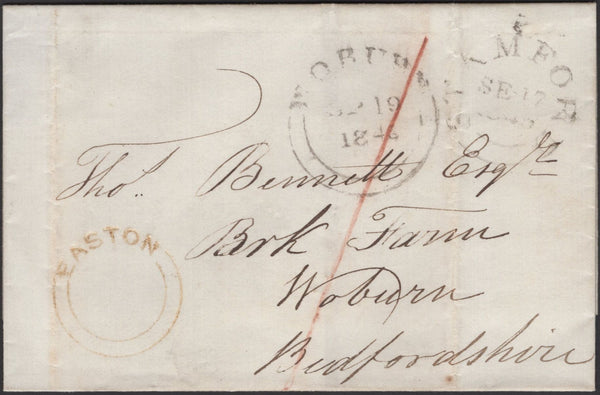 WOBURN
SE 19
184
SE-17
EASTON
Thos. Bennett Esqre
Park Farm
Woburn
Bedfordshire